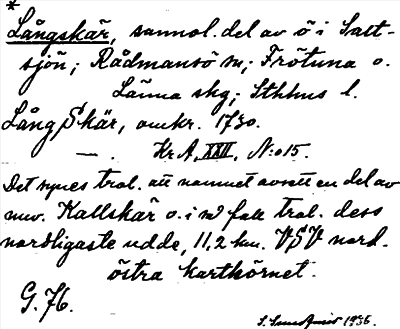 *
Långskär, sannol. del av ö i Salt-
sjön; Rådmansö sn; Frötuna o.
Länna skg; Sthlms l.
Lång Skär, omkr. 1730.
— . Kr A, XXII, N:o 15.
Det synes trol. att namnet avsett en del av
nuv. Kallskär o. i så fall trol. dess
nordligaste udde, 11,2 km. VSV nord-
östra karthörnet.
G. 76.
1936.